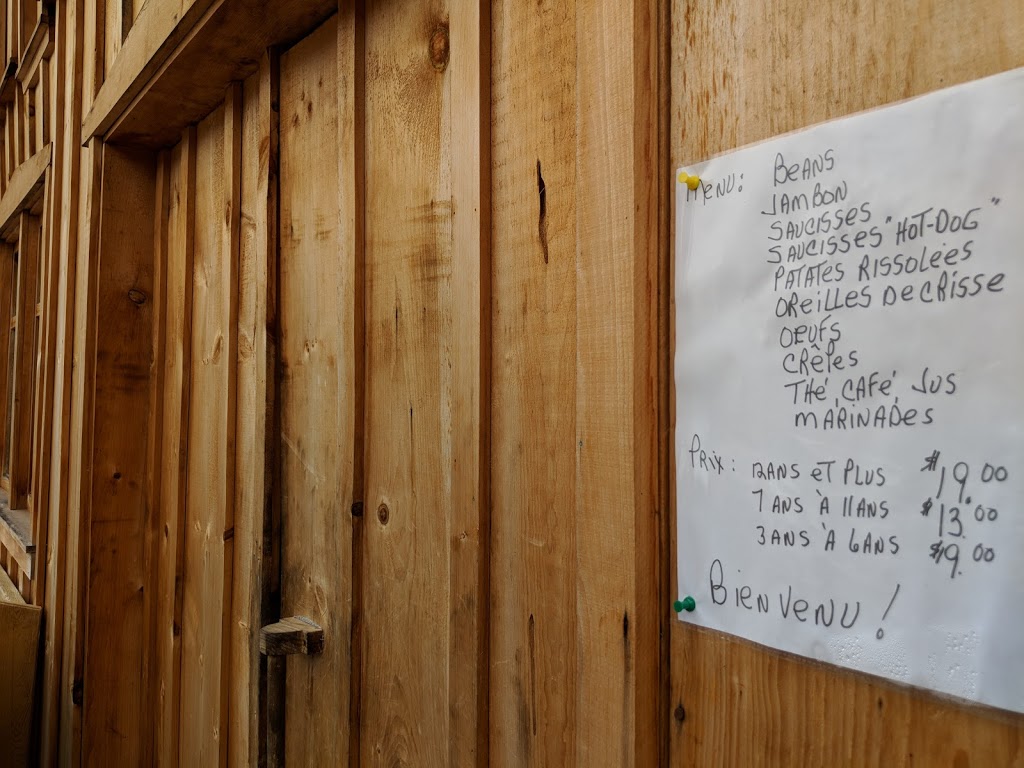 MENU: BEANS
JAMBON
SAUCISSES
SAUCISSES "HOT-DOG"
PATATES RISSOLÉES
OREILLES DE CRISSE
OEUFS
CRÊPES
THÉ, CAFÉ, JUS
MARINADES
PRIX: 12 ANS ET PLUS $19.00
7 ANS À 11 ANS $13.00
3 ANS À 6 ANS $9.00
BIENVENU!